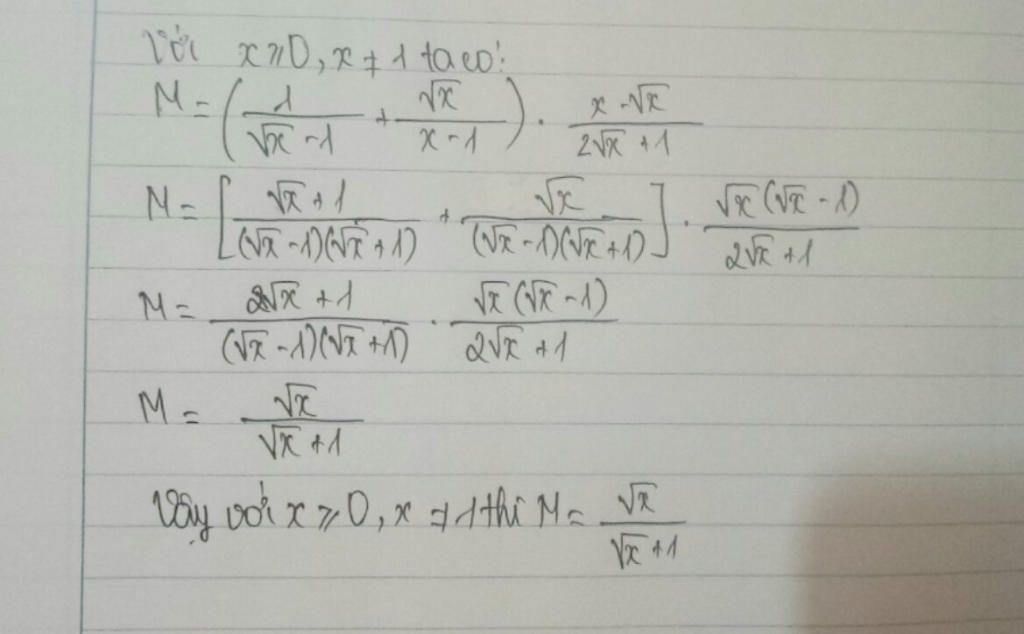 Với x ≥ 0, x ≠ 1 ta có:
M = (1/(√x - 1) + √x/(x - 1)) · (x - √x)/(2√x + 1)
M = [(√x + 1)/((√x - 1)(√x + 1)) + √x/((√x - 1)(√x + 1))] · √x(√x - 1)/(2√x + 1)
M = (2√x + 1)/((√x - 1)(√x + 1)) · √x(√x - 1)/(2√x + 1)
M = √x/(√x + 1)
Vậy với x ≥ 0, x ≠ 1 thì M = √x/(√x + 1)